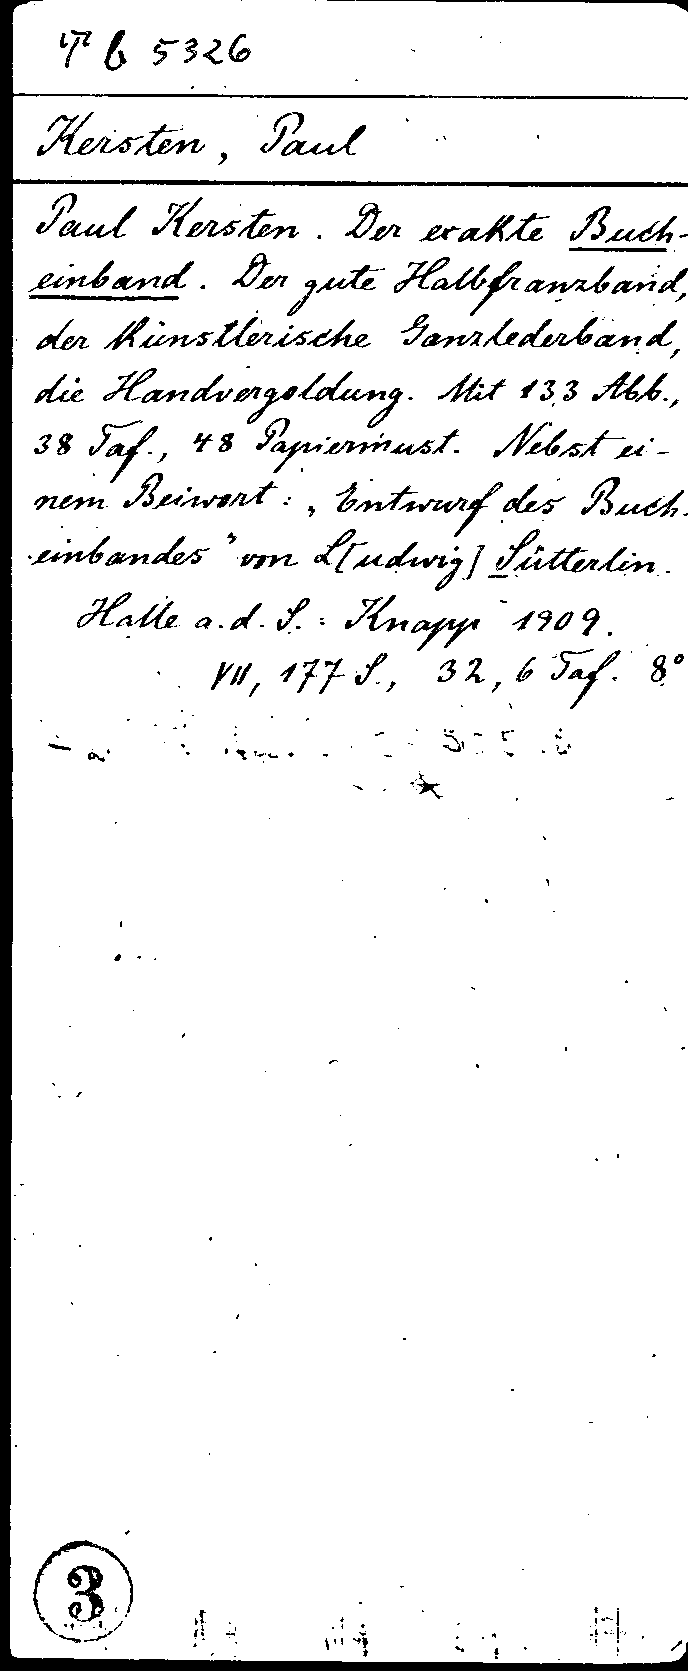 Tb 5326
Kersten, Paul
Paul Kersten. Der exakte Buch-
einband. Der gute Halbfranzband,
der künstlerische Ganzlederband,
die Handvergoldung. Mit 133 Abb.,
38 Taf., 48 Papiermust. Nebst ei-
nem Beiwort: „Entwurf des Buch-
einbandes" von L[udwig] Sütterlin.
Halle a.d.S.: Knapp 1909.
VII, 177 S., 32, 6 Taf. 8°
3